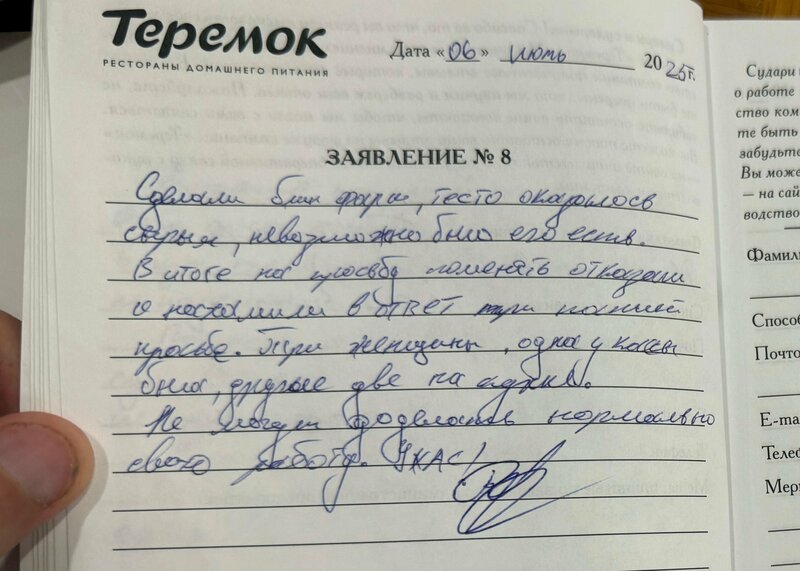 Теремок
РЕСТОРАНЫ ДОМАШНЕГО ПИТАНИЯ
Дата «06» июль 2025г.
ЗАЯВЛЕНИЕ № 8
Сделали блин фарш, тесто оказалось
сырым, невозможно было его есть.
В итоге на просьбу поменять отказали
и нахамили в ответ при полной
просьбе. Три женщины, одна у кассы
была, другие две на кухне.
Не могут доделать нормально
свою работу. УЖАС!
Судари и
о работе
ство ком
те быть
забудьте
Вы може
— на сай
водство
Фамили
Способ
Почто
E-ma
Телеф
Мер